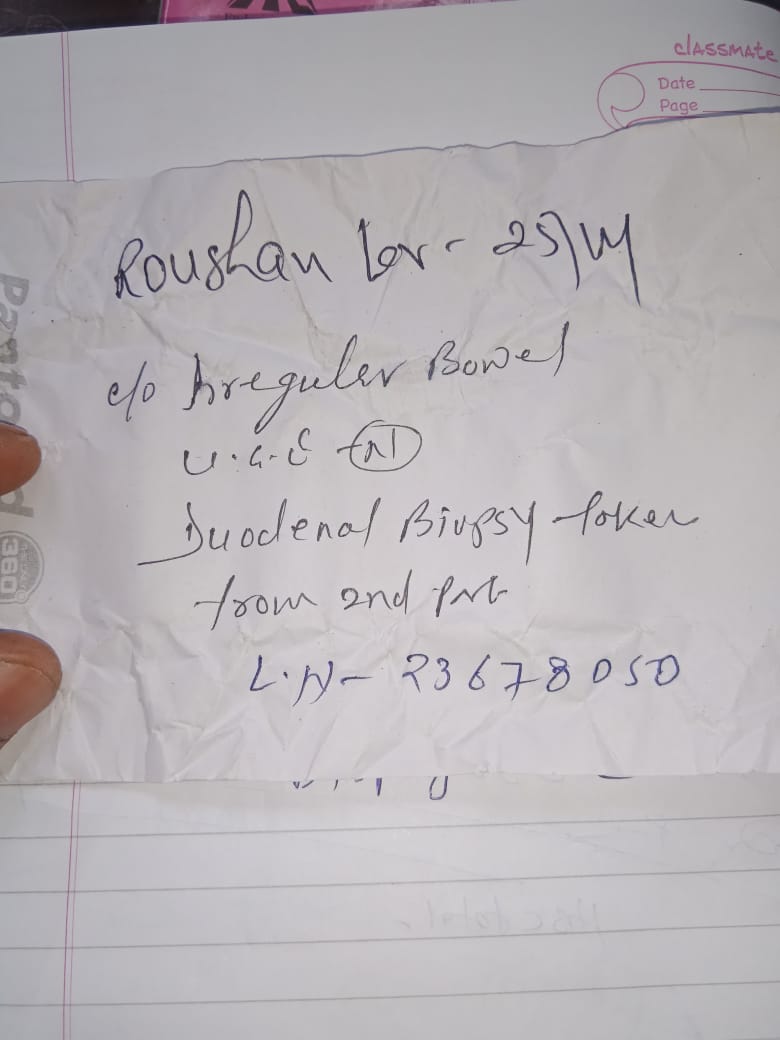 classmate
Date
Page
Roushan 25/M
c/o Irregular Bowel
U.G.E (N)
Duodenal Biopsy taken
from 2nd Part
L.N- 23678050
Panto
360